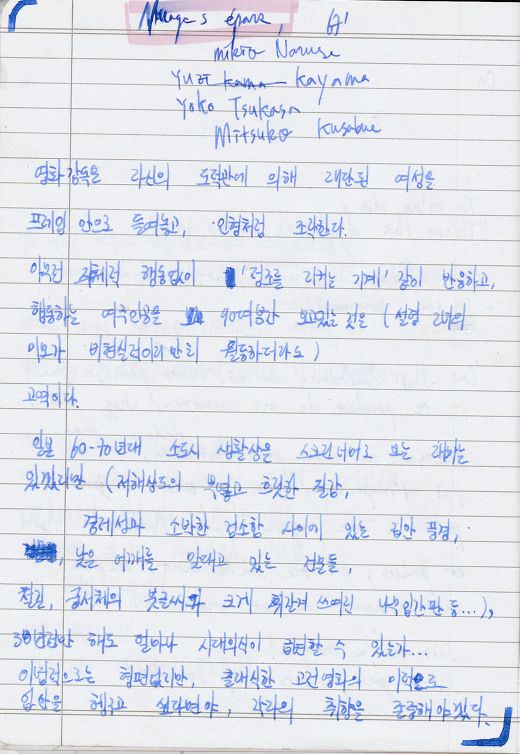 61'
Mikio Naruse
Yuzo kama Kayama
Yoko Tsukasa
Mitsuko Kusabue
영화감독은 자신의 도덕관에 의해 재단된 여성을
프레임 안으로 들여놓고, 인형처럼 조작한다.
아무런 자체적 행동없이 '정조를 지키는 기계' 같이 반응하고,
행동하는 여주인공을 90여분간 보고있는 것은 (설령 그녀의
미모가 비현실적이리만치 월등하더라도)
고역이다.
일본 60-70년대 소도시 생활상을 스크린너머로 보는 재미는
있겠지만 (저해상도의 뿌옇고 흐릿한 질감,
경제성과 소박한 검소함 사이에 있는 집안 풍경,
낮은 어깨를 맞대고 있는 건물들,
철길, 궁서체의 붓글씨로 크게 휘갈겨 쓰여진 나무입간판 등...),
30년만 해도 얼마나 시대의식이 급변할 수 있는가...
이념적으로는 형편없지만, 클래식한 고전영화의 미적으로
입안을 헹구고 싶다면야, 각자의 취향을 존중해야겠다.